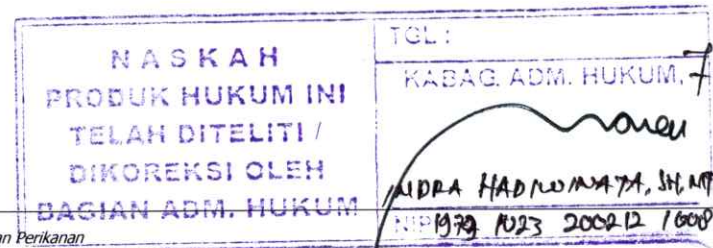 NASKAH
PRODUK HUKUM INI
TELAH DITELITI /
DIKOREKSI OLEH
BAGIAN ADM. HUKUM
TGL :
KABAG. ADM. HUKUM,
NIP 1979 1023 200212 1
an Perikanan